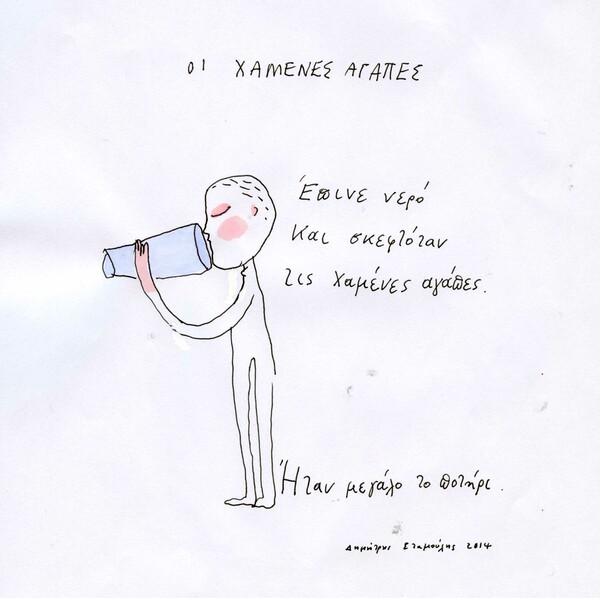 οι ΧΑΜΕΝΕΣ ΑΓΑΠΕΣ
Έπινε νερό
και σκεφτόταν
τις χαμένες αγάπες.
Ήταν μεγάλο το ποτήρι.
Δημήτρης Σταμούλης 2014